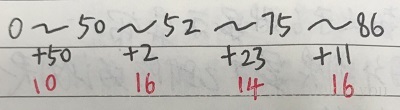 0~50~52~75~86
+50 +2 +23 +11
10 16 14 16